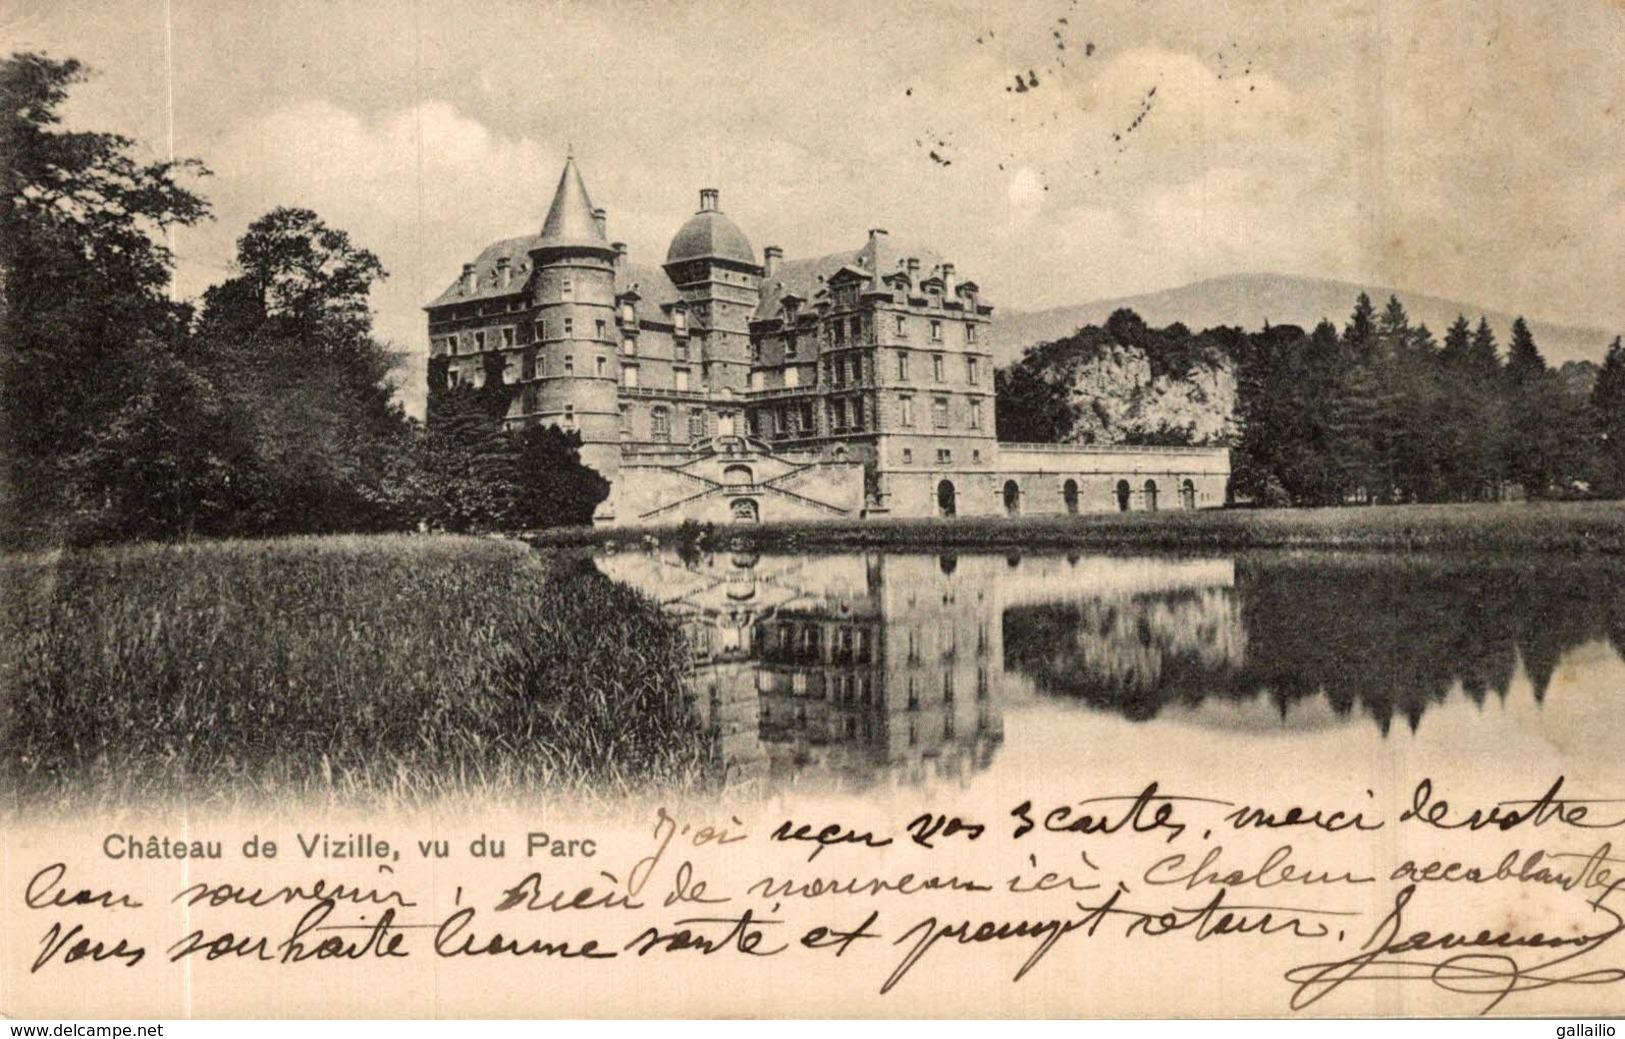 Château de Vizille, vu du Parc
J'ai reçu vos 3 cartes, merci de votre
bon souvenir, Rien de nouveau ici, Chaleur accablante,
Vous souhaite bonne santé et prompt retour.
www.delcampe.net
gallailio